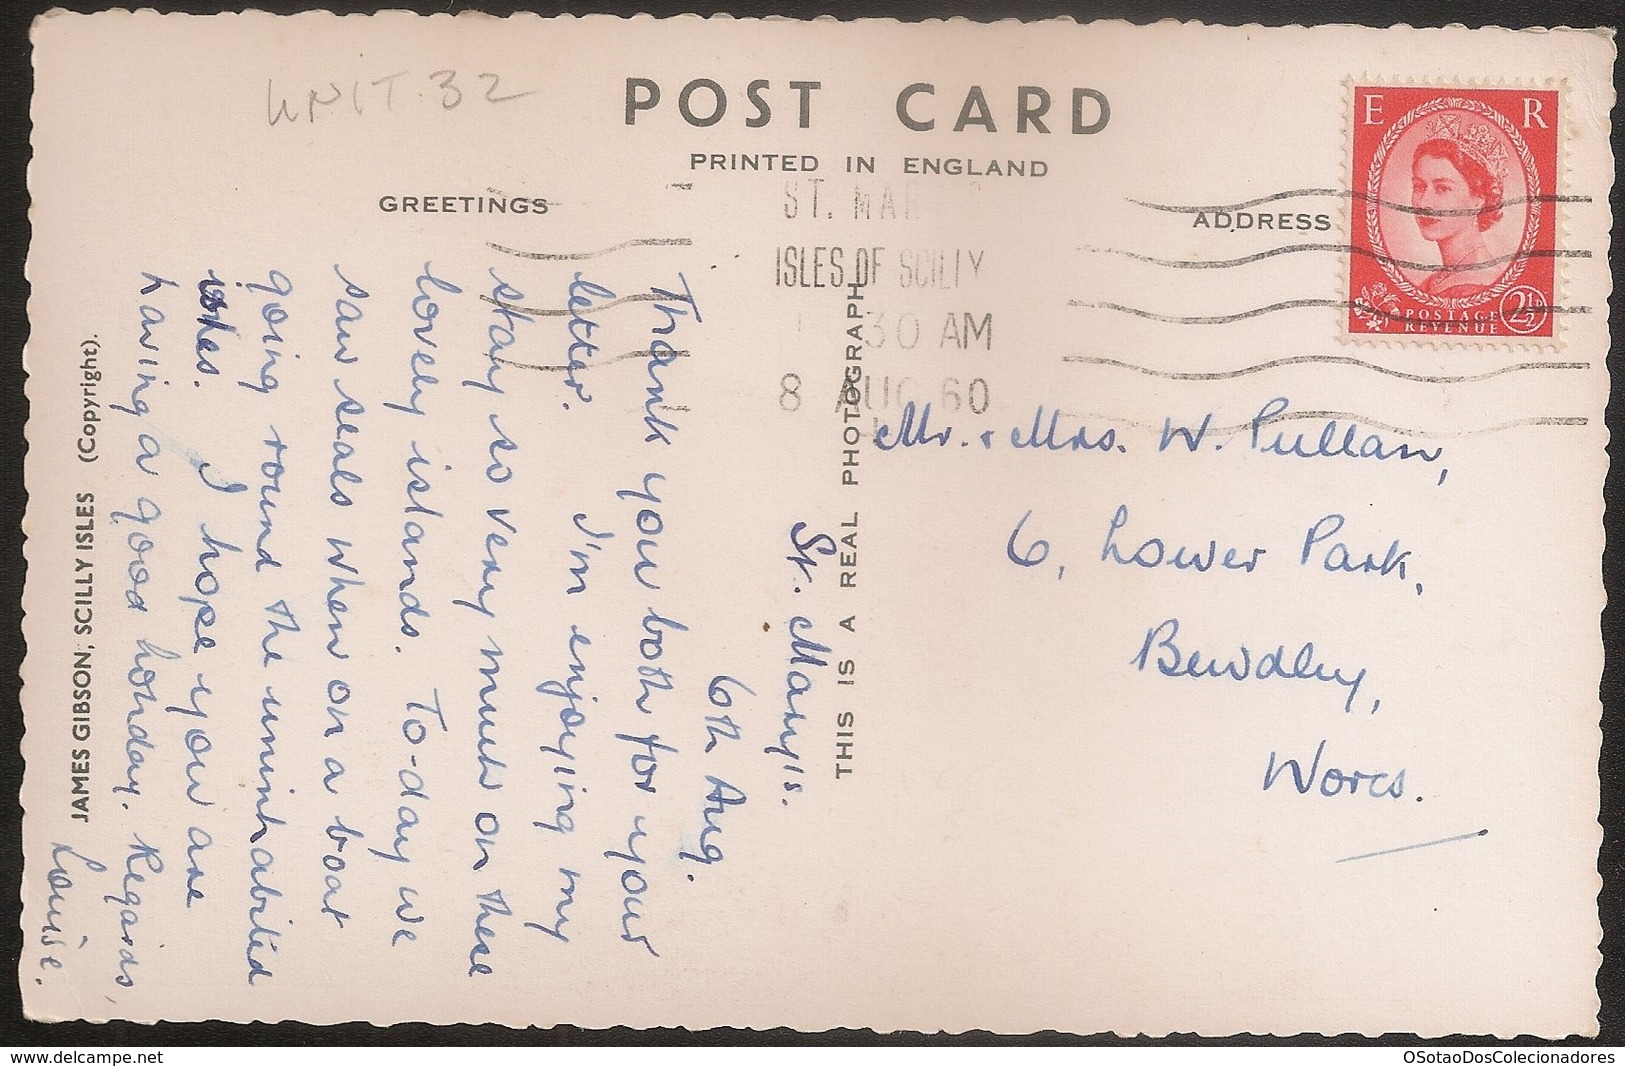 UNIT.32
POST CARD
PRINTED IN ENGLAND
GREETINGS
ADDRESS
E R
POSTAGE
REVENUE
2½D
ST. MAR
ISLES OF SCILLY
30 AM
8 AUG 60
St. Mary's.
6th Aug.
Thank you both for your
letter. I'm enjoying my
stay so very much on these
lovely islands. To-day we
saw seals when on a boat
going round the uninhabited
isles. I hope you are
having a good holiday. Regards,
Louise.
JAMES GIBSON, SCILLY ISLES (Copyright).
THIS IS A REAL PHOTOGRAPH
Mr. & Mrs. W. Pullan,
6, Lower Park,
Bewdley,
Worcs.
delcampe.net
OSotaoDosColecionadores